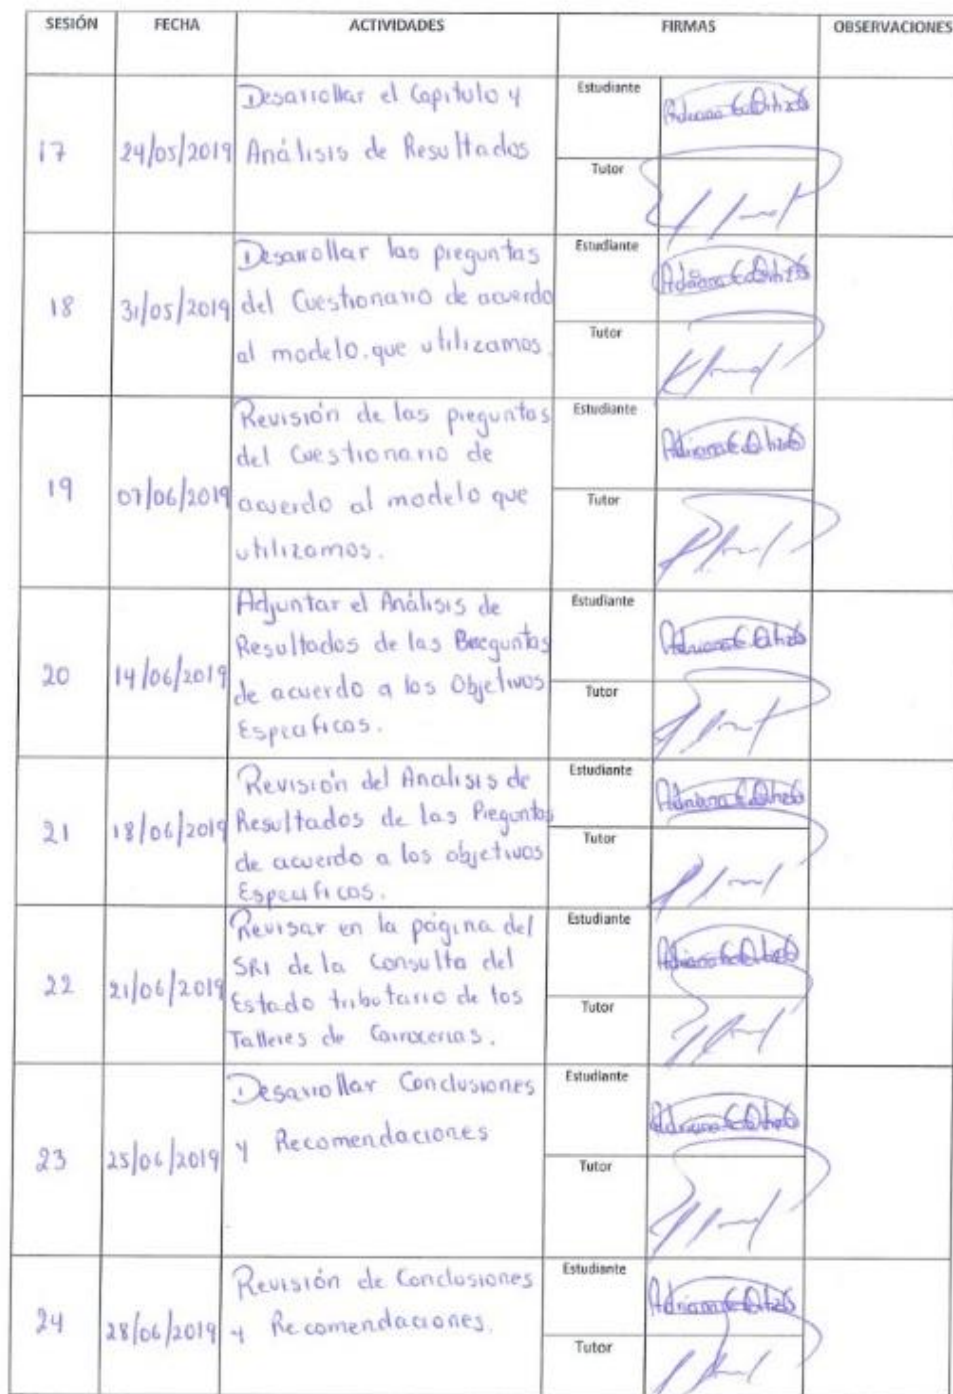 SESIÓN FECHA ACTIVIDADES FIRMAS OBSERVACIONES
17 24/05/2019
Desarrollar el Capitulo 4
Análisis de Resultados
Estudiante
Tutor
18 31/05/2019
Desarrollar las preguntas
del Cuestionario de acuerdo
al modelo que utilizamos.
Estudiante
Tutor
19 07/06/2019
Revisión de las preguntas
del Cuestionario de
acuerdo al modelo que
utilizamos.
Estudiante
Tutor
20 14/06/2019
Adjuntar el Análisis de
Resultados de las Preguntas
de acuerdo a los Objetivos
Especificos.
Estudiante
Tutor
21 18/06/2019
Revisión del Analisis de
Resultados de las Preguntas
de acuerdo a los objetivos
Especificos.
Estudiante
Tutor
22 21/06/2019
Revisar en la página del
SRI de la Consulta del
Estado tributario de los
Talleres de Carrocerias.
Estudiante
Tutor
23 25/06/2019
Desarrollar Conclusiones
y Recomendaciones
Estudiante
Tutor
24 28/06/2019
Revisión de Conclusiones
y Recomendaciones.
Estudiante
Tutor